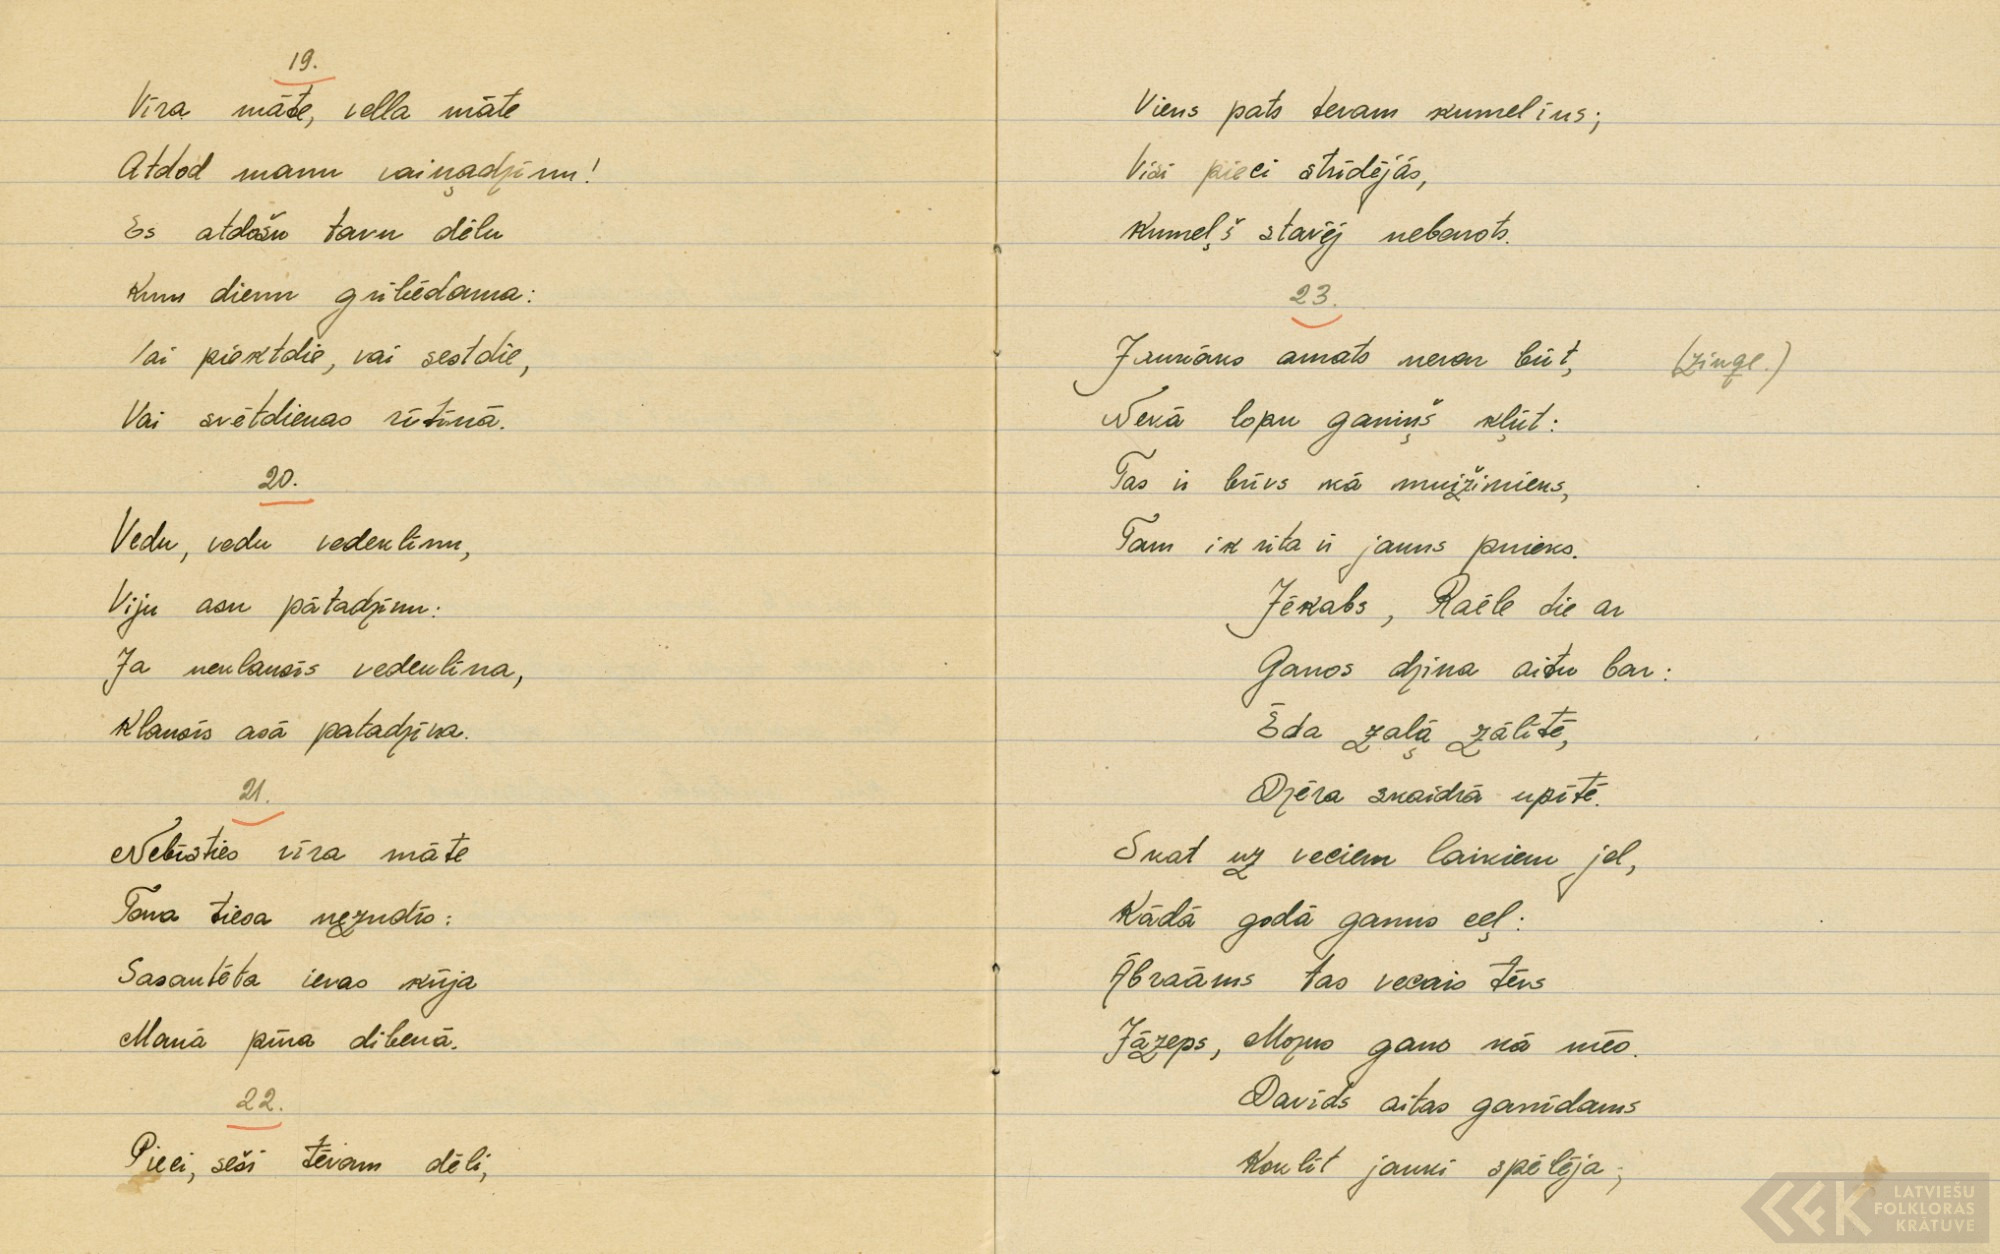 19.
Vīra māte, vella māte
Atdod manu vaiņadziņu!
Es atdošu tavu dēlu
Kuru dienu gribēdama:
Vai piektdie, vai sestdie,
Vai svētdienas rītiņā.
20.
Vedu, vedu vedekliņu,
Viju asu pātadziņu:
Ja neklausīs vedekliņa,
Klausīs asā patadziņa.
21.
Nebīsties vīra māte
Tava tiesa nezudīs:
Sasautēta ievas kūja
Manā pūra dibenā.
22.
Pieci, seši tēvam dēli,
Viens pats tevam kumeliņš;
Visi pieci strīdējās,
Kumeļš stavēj nebarots.
23.
Jaukāks amats nevar būt, (zinģe.)
Nekā lopu ganiņš kļūt:
Tas ir brīvs kā muižinieks,
Tam ik rīta ir jauns prieks.
Jēkabs, Raēle tie ar
Ganos dzina aitu bar:
Ēda zaļā zālītē,
Dzēra skaidrā upītē.
Skat uz veciem laikiem jel,
Kādā godā ganus ceļ:
Ābraāms tas vecais tēvs
Jāzeps, Mozus gans kā mēs.
Davids aitas ganīdams
Koklīt jauki spēlēja;
LATVIEŠU
FOLKLORAS
KRĀTUVE